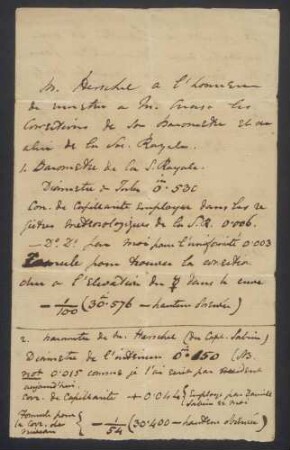 M. Herschel a l'honneur
de remettre a M. les
Corrections de son Barometre et de
celui de la Soc. Royale.
1. Barometre de la S. Royale.
Diametre du Tube 0.530
Corr. de Capillarité employée dans les re
gistres meteorologiques de la S.R. 0.006.
— Do. Do. par moi pour l'uniformité 0.003
Formule pour trouver la correction
due a l'elevation du ☿ dans la cuve
— 1/100 (30.576 — hauteur observée)
2. Barometre de M. Herschel (du Capt. Sabine)
Diametre de l'interieur 0.150 (NB.
not 0.015 comme je l'ai ecrit par accident
aujourdhui.
Corr. de Capillarité + 0.044 { Employé par Daniell
Sabine et moi
Formule pour
la Corr. de
niveau } — 1/54 (30.400 — hauteur observée)